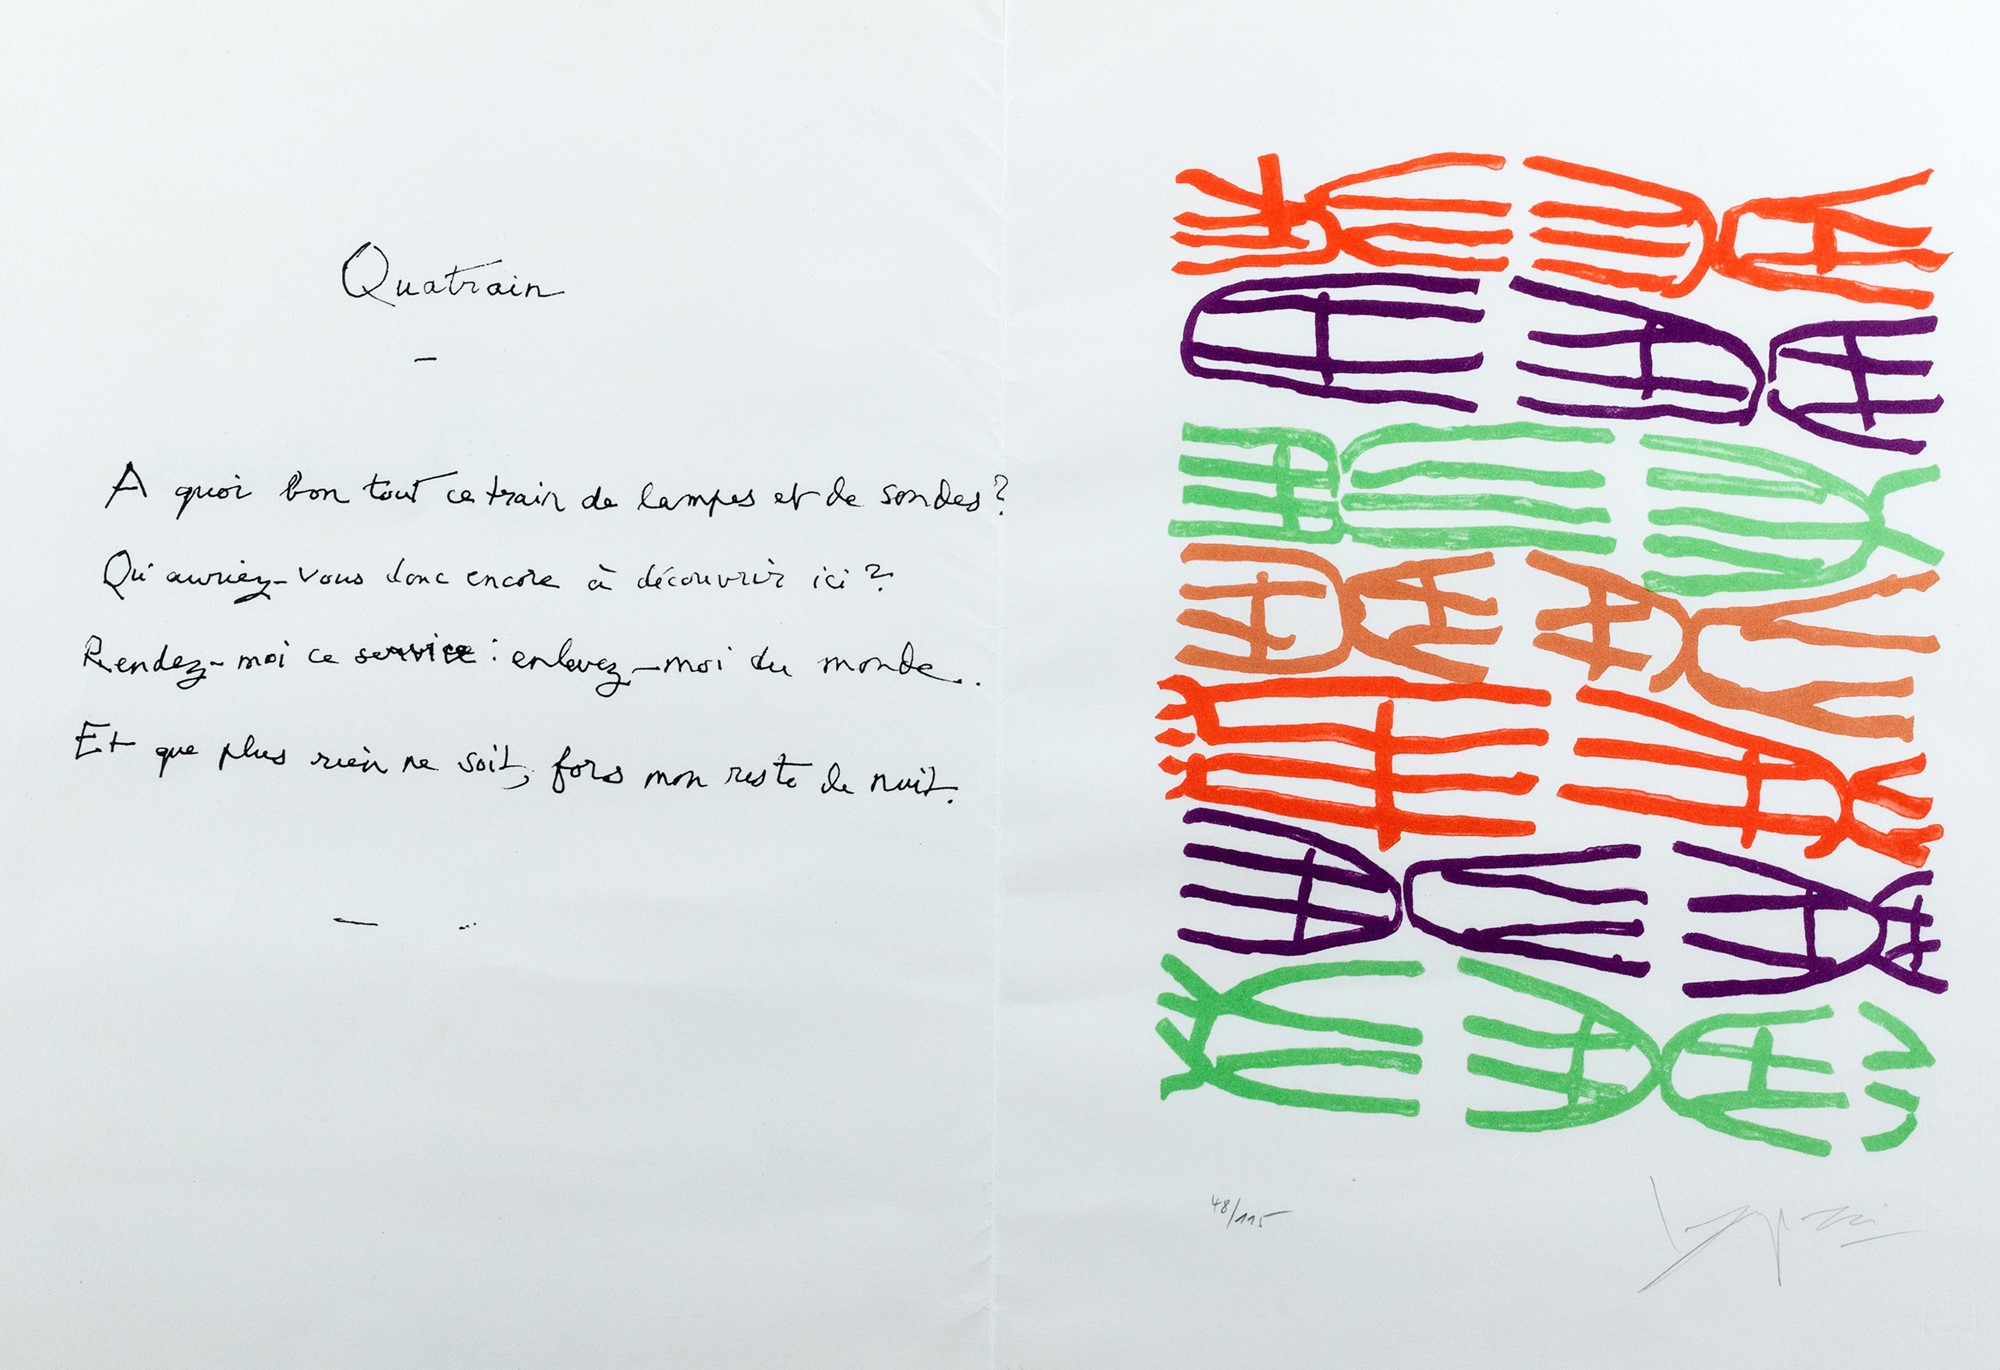 Quatrain
A quoi bon tout ce train de lampes et de sondes ?
Qu'auriez-vous donc encore à découvrir ici ?
Rendez-moi ce service : enlevez-moi du monde.
Et que plus rien ne soit, fors mon reste de nuit.
48/115